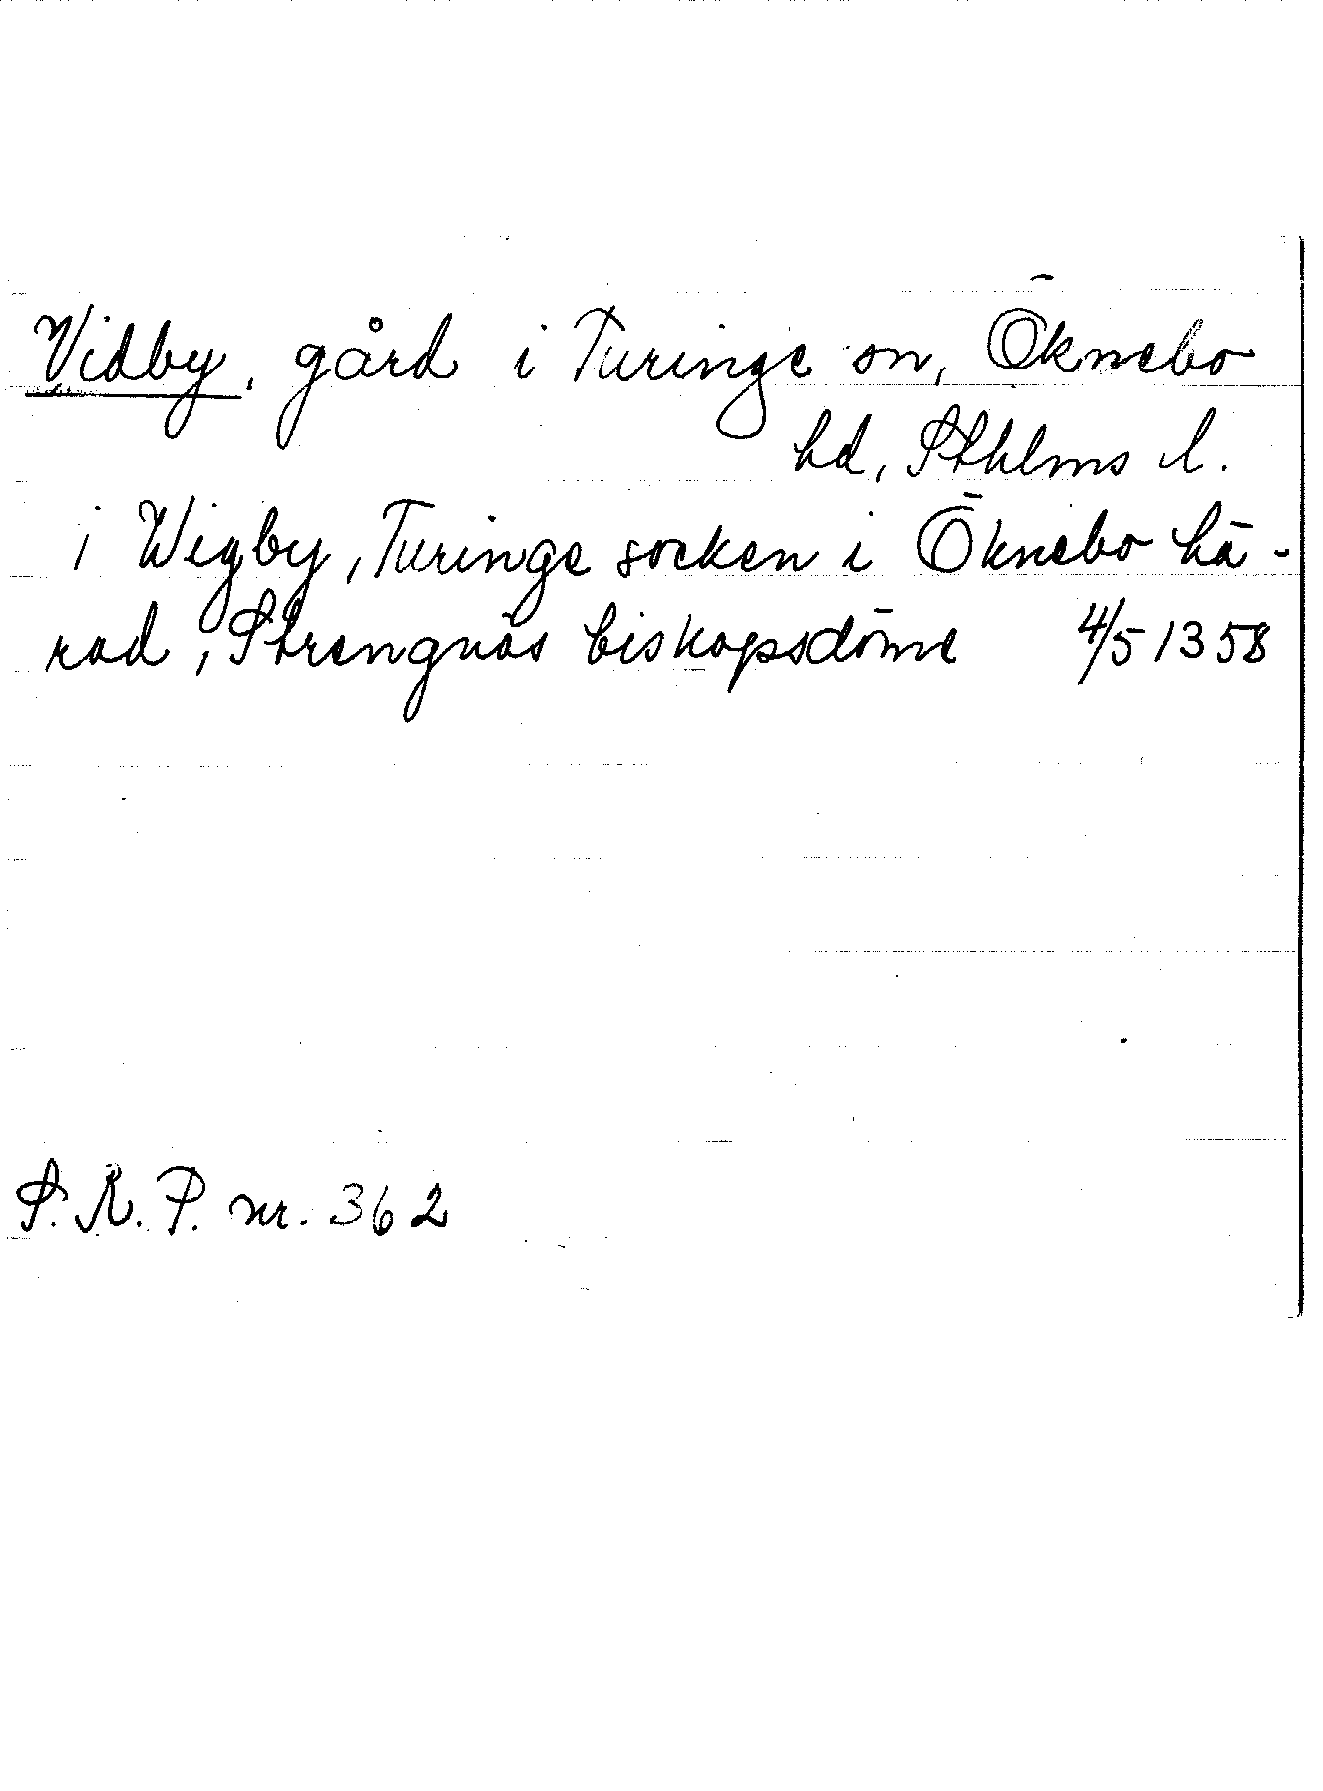 Vidby, gård i Turinge sn, Öknebo
hd, Sthlms l.
i Wigby, Turinge socken i Öknebo hä-
rad, Strengnäs biskopsdöme 4/5 1358
S.R.P. nr. 362